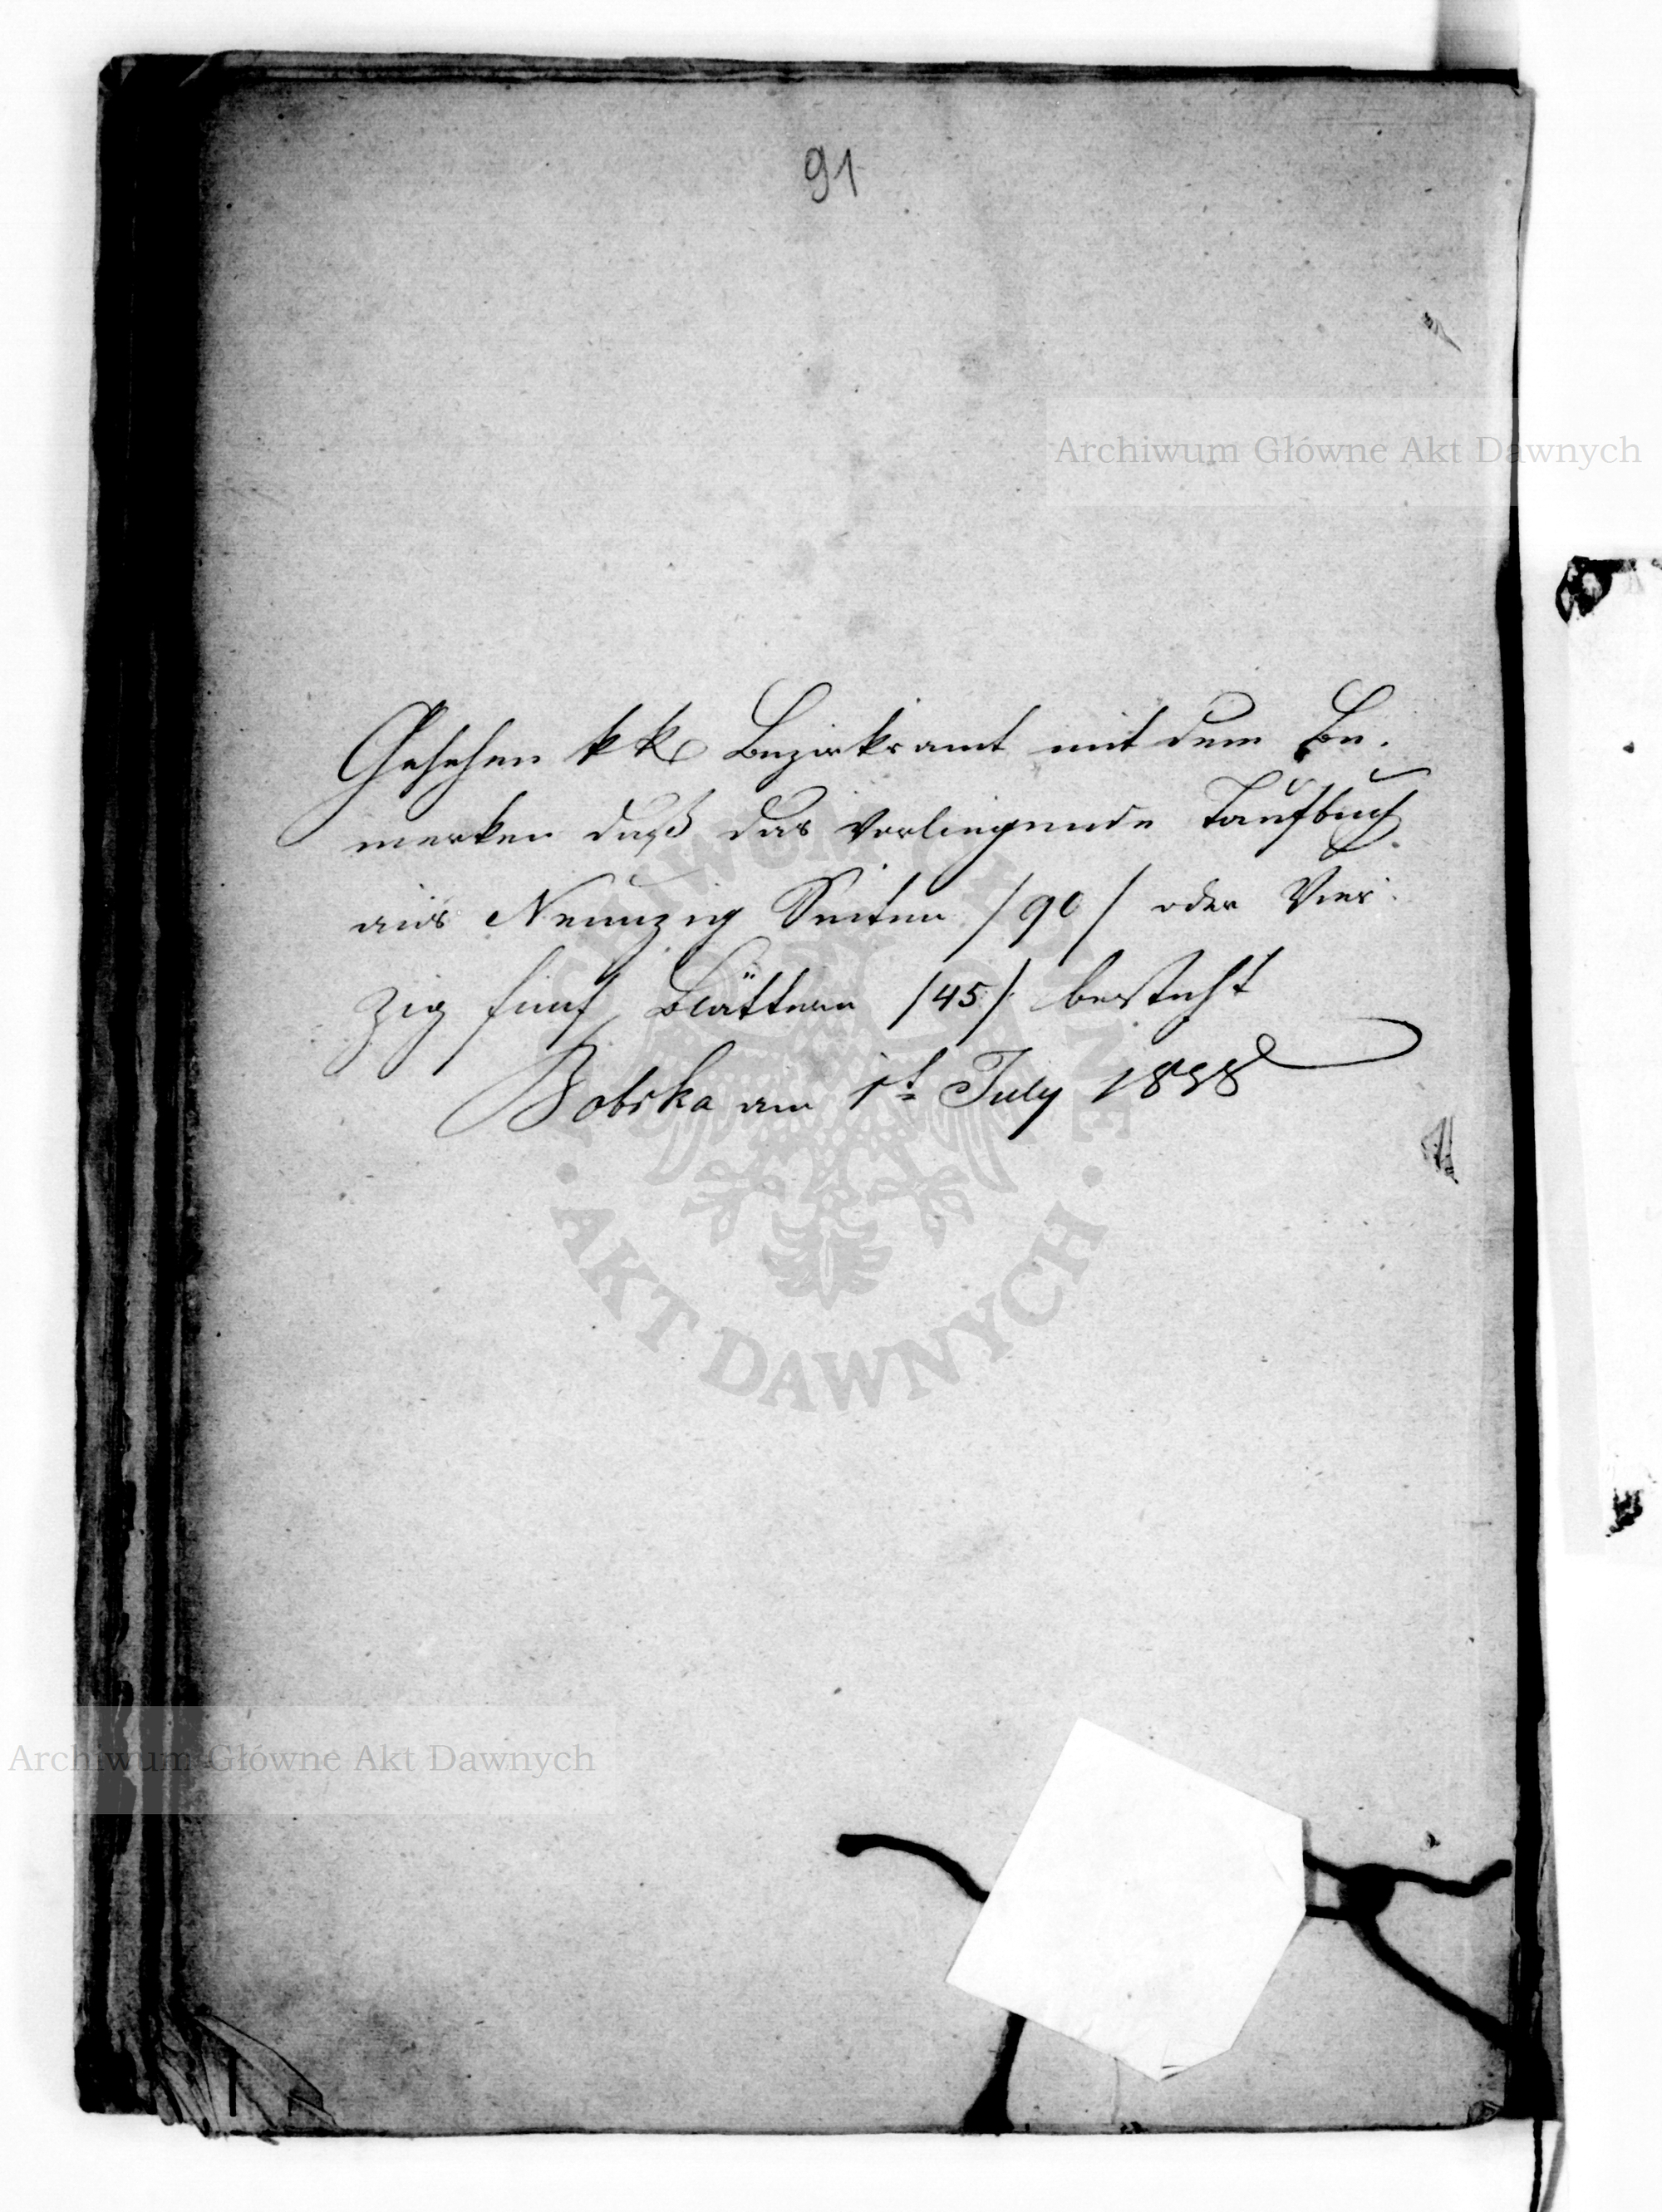 91
Archiwum Główne Akt Dawnych
Gesehen k k Bezirksamt mit dem Be-
merken daß das vorliegende Taufbuch
aus Neunzig Seiten /90/ oder Vier-
zig fünf Blättern /45/ besteht
Bobrka am 1t July 1858
AKT DAWNYCH
Archiwum Główne Akt Dawnych